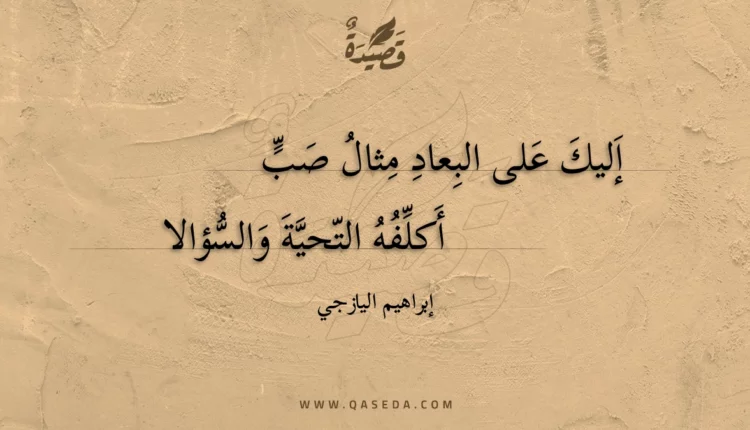 قَصِيْدَةٌ
إَليكَ عَلى البِعادِ مِثالُ صَبٍّ
أَكلِّفُهُ التّحيَّةَ وَالسُّؤالا
إبراهيم اليازجي
WWW.QASEDA.COM